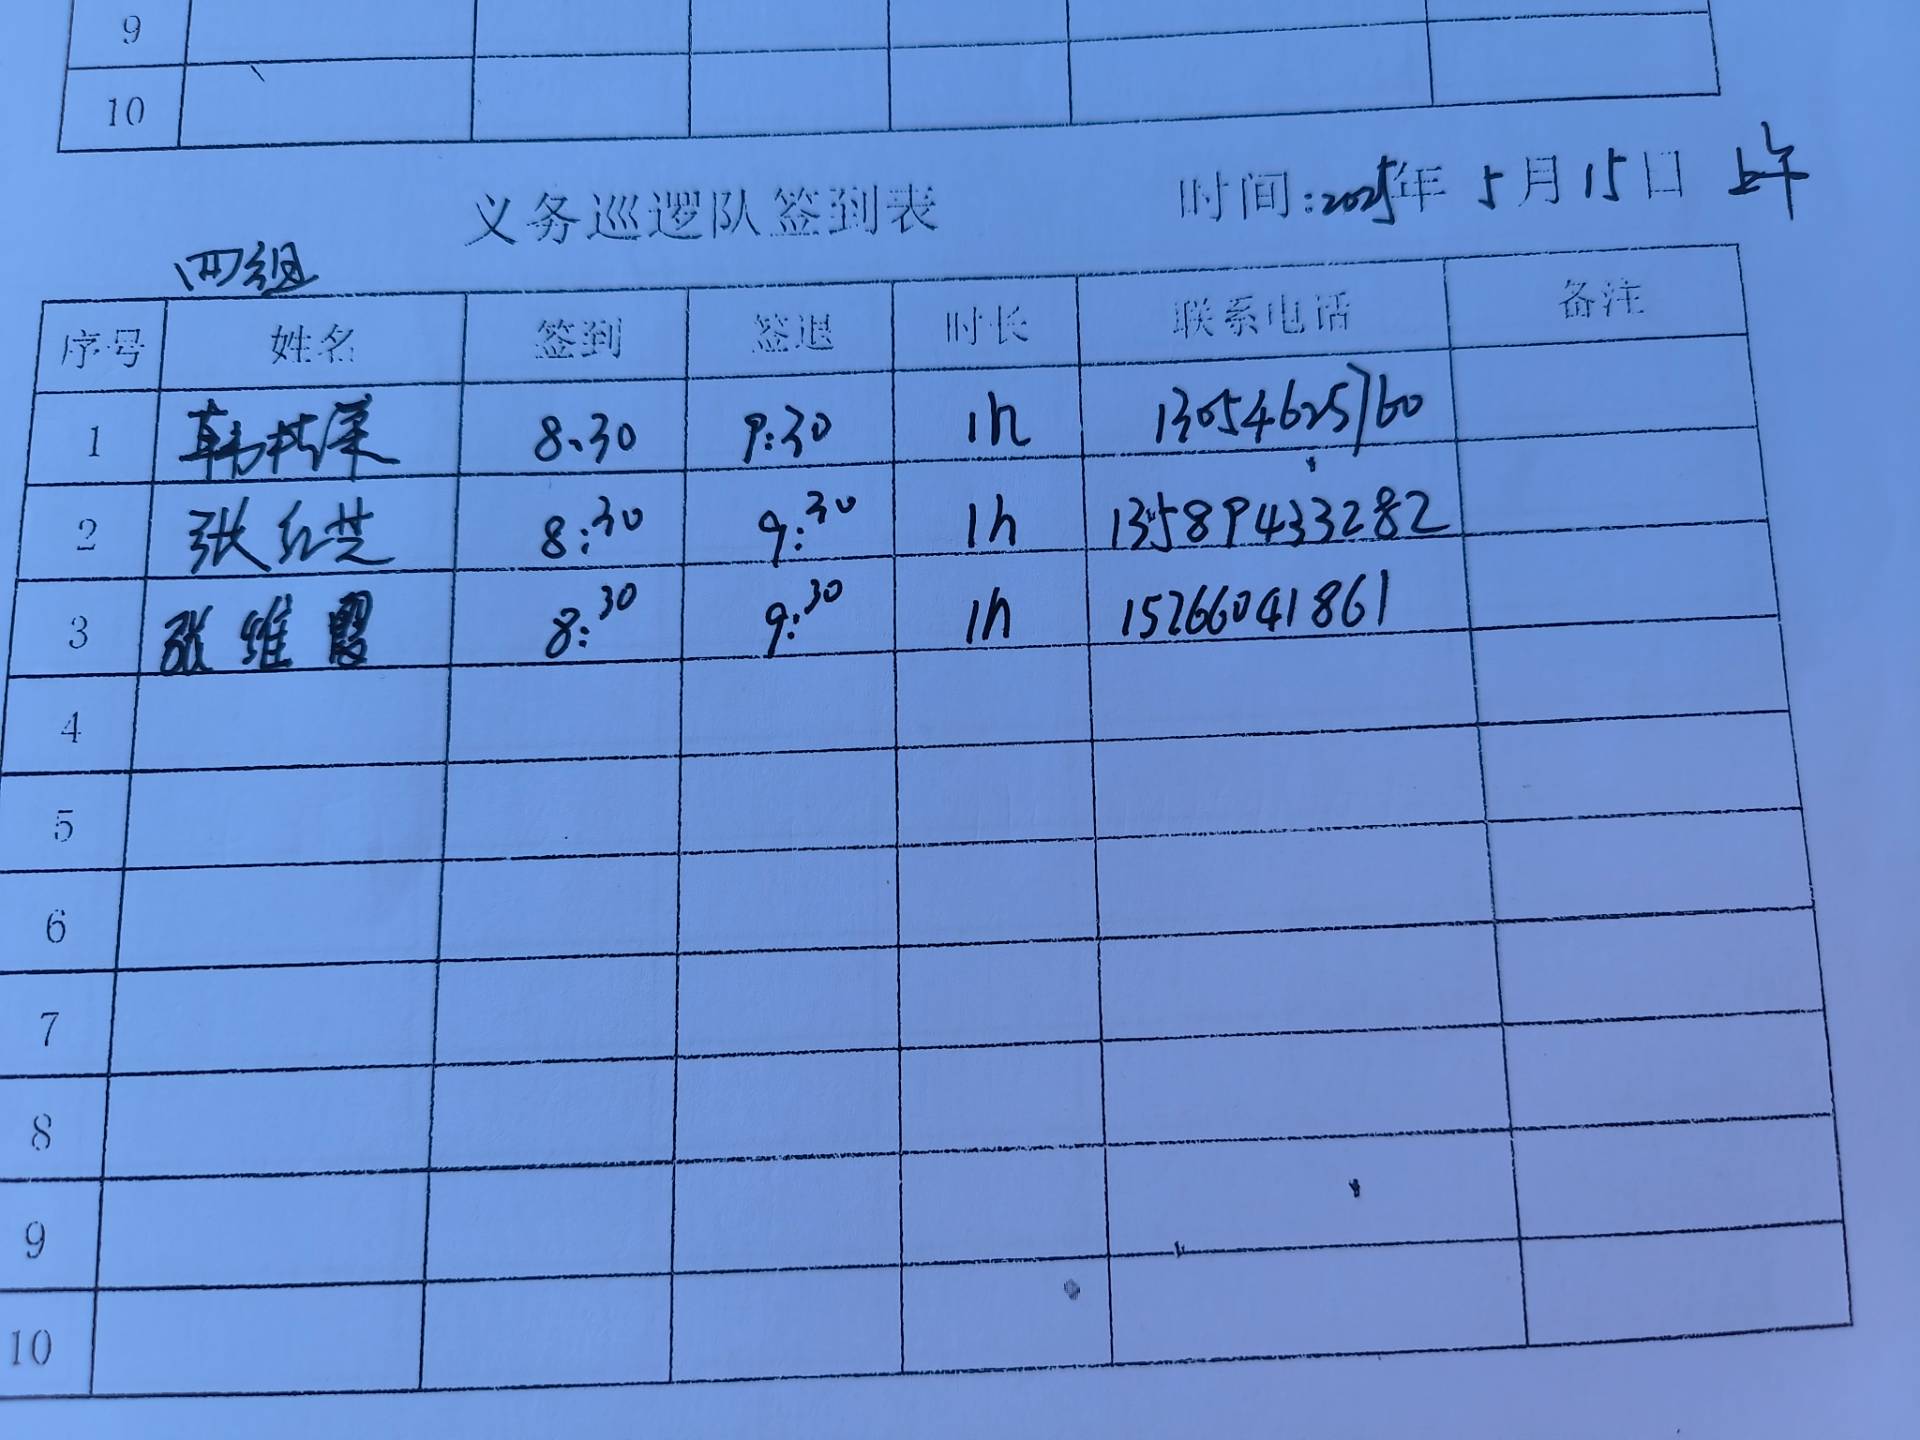 9
10
义务巡逻队签到表 时间:2025年 5月15日 上午
四组
序号 姓名 签到 签退 时长 联系电话 备注
1 韩 8.30 9:30 1h 13054625760
2 张红芝 8:30 9:30 1h 13589433282
3 张维霞 8:30 9:30 1h 15266041861
4
5
6
7
8
9
10